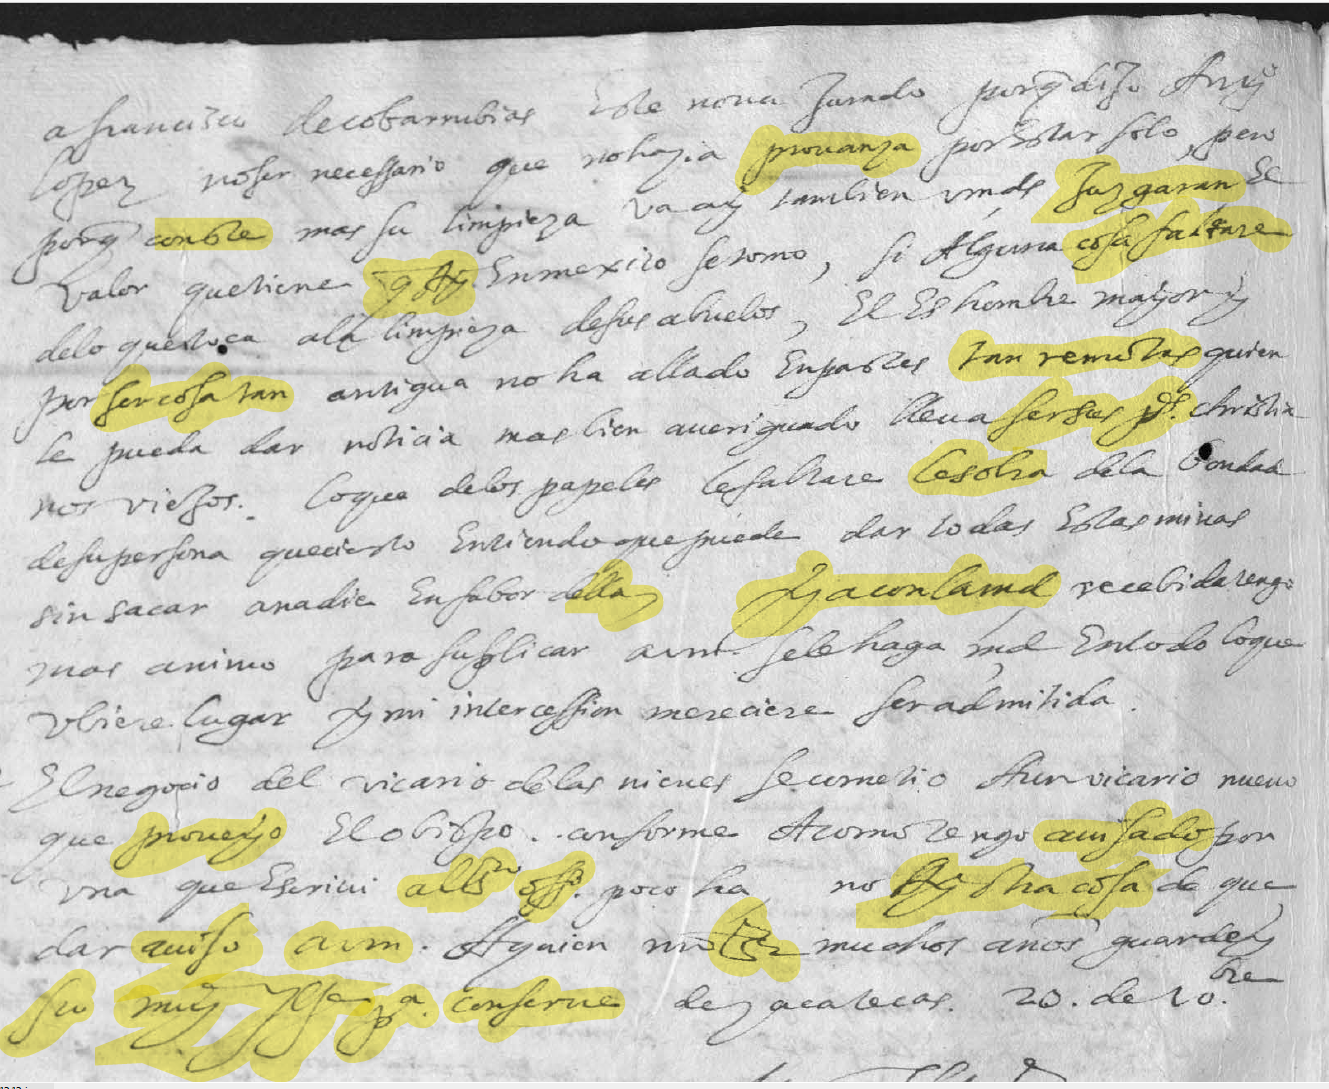 a francisco de cobarrubias Este no va Jurado porq̃ dijo Ruy
lopez no ser necessario que no haya prouanza por Estar solo, pero
porq̃ conste mas su limpieza va ay tambien vmds Juzgaran El
valor que tiene q̃ Ay En mexico se tomo, si Alguna cosa faltare
delo que toca ala limpieza desus abuelos, El Es hombre mayor y
por ser cosa tan antigua no ha allado En partes tan remotas quien
le pueda dar noticia mas bien aueriguado lleua ser sus ps. christia
nos viejos. lo que delos papeles le faltare le sobra dela bondad
desu persona que cierto Entiendo que puede dar todas Estas minas
sin sacar a nadie En fabor della, Ya con la md recebida tengo
mas animo para supplicar a vm. sele haga md En todo lo que
vbiere lugar Y mi intercession mereciere ser admitida.
El negocio del vicario delas nieues se cometio A un vicario nueuo
que proueyo El obispo. conforme A como tengo auisado por
vna que Escriui al sto offo. poco ha no Ay otra cosa de que
dar auiso a vm. A quien nro sr muchos años guarde y
su muy Ille pa. conserue de zacatecas. 20. de 10.bre